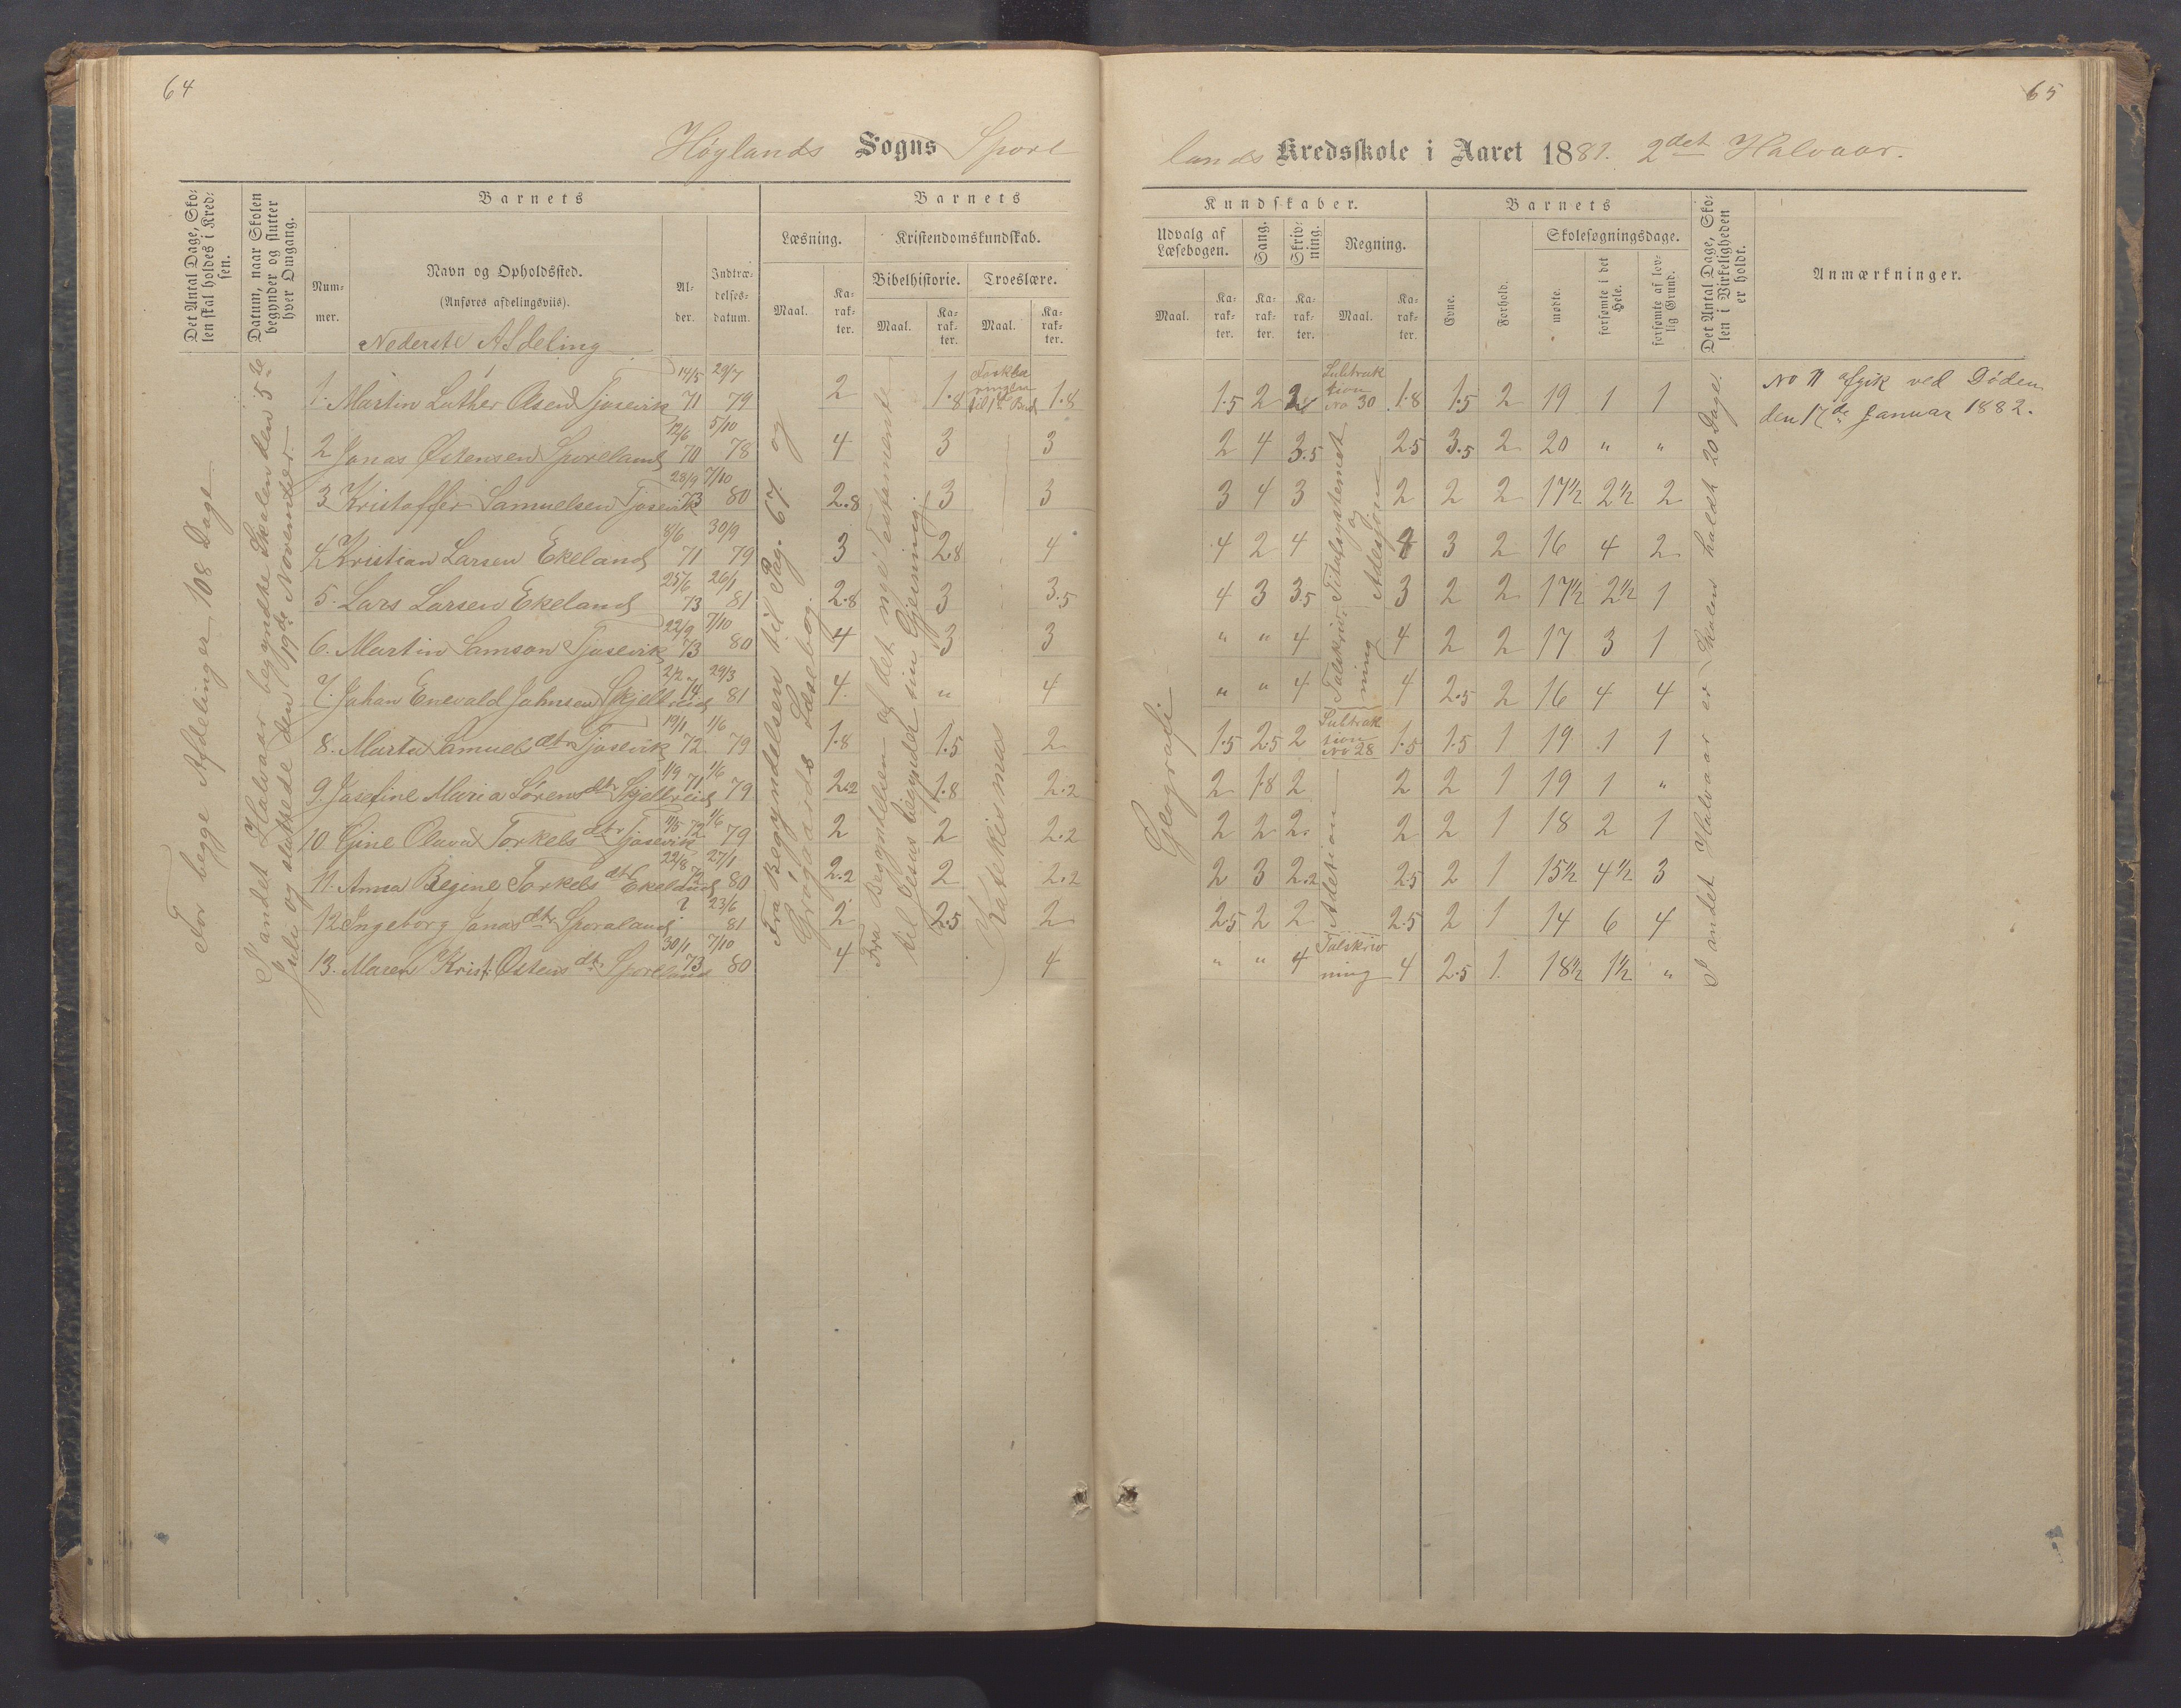 64
Høylands Sogns Spore
Det Antal Dage, Sko-
len skal holdes i Kred-
sen.
Datum, naar Skolen
begynder og slutter
hver Omgang.
Barnets
Barnets
Num-
mer.
Navn og Opholdssted.
(Anføres afdelingsviis).
Al-
der.
Indtræ-
delses-
datum.
Læsning.
Kristendomskundskab.
Bibelhistorie.
Troeslære.
Maal.
Ka-
rak-
ter.
Maal.
Ka-
rak-
ter.
Maal.
Ka-
rak-
ter.
Nederste Afdeling
For begge Afdelinger 108 Dage
I andet Halvaar begyndte Skolen den 5te
Juli og sluttede den 19de November.
Fra Begyndelsen til Pag. 67 og
Grøgaards Læsebog.
Fra Begyndelsen af det nye Testamente
til Jesus begynder sin Gjerning
Katekismus
1. Martin Luther Olsen Tjosevik 14/5 71 29/7 79 2 1.8 Forkla
ringen
til 1ste Bud 1.8
2 Jonas Østensen Sporeland 12/6 70 5/10 78 4 3 3
3 Kristoffer Samuelsen Tjosevik 28/9 73 7/10 80 2.8 3 3
4 Kristian Larsen Ekeland 8/6 71 30/9 79 3 2.8 4
5. Lars Larsen Ekeland 25/6 73 26/1 81 2.8 3 3.5
6. Martin Samson Tjosevik 22/9 73 7/10 80 4 3 3
7. Johan Enevald Johnsen Skjellreid 2/2 74 29/3 81 4 " 4
8. Marta Samuelsdtr Tjosevik 19/1 72 1/6 79 1.8 1.5 2
9. Josefine Maria Sørensdtr Skjellreid 1/9 71 1/6 79 2.2 1.8 2.2
10 Gine Olava Torkelsdtr Tjosevik 11/5 72 1/6 79 2 2 2.2
11. Anna Regine Torkelsdtr Ekeland 22/8 72 27/1 80 2.2 2 2.2
12 Ingeborg Jonasdtr Sporaland ? 23/6 81 2 2.5 2
13. Maren Krist. Østensdtr Sporeland 30/1 73 7/10 80 4 4
65
lands Kredsskole i Aaret 1881. 2det Halvaar.
Kundskaber.
Barnets
Udvalg af
Læsebogen.
Sang.
Skriv-
ning.
Regning.
Skolesøgningsdage.
Maal.
Ka-
rak-
ter.
Ka-
rak-
ter.
Ka-
rak-
ter.
Maal.
Ka-
rak-
ter.
Evne.
Forhold.
mødte.
forsømte i det
Hele.
forsømte af lov-
lig Grund.
Det Antal Dage, Sko-
len i Virkeligheden
er holdt.
Anmærkninger.
Geografi
Talskriv-
ning
Titalsystemet
og
Adesjon
Adetsion
I andet Halvaar er Skolen holdt 20 Dage.
1.5 2 2.8 Subtrak
tion
No 30 1.8 1.5 2 19 1 1
No 11 afgik ved Døden
den 17de Januar 1882.
2 4 3.5 2.5 3.5 2 20 " "
3 4 3 2 2 2 17½ 2½ 2
4 2 4 3 2 16 4 2
4 3 3.5 3 2 2 17½ 2½ 1
" " 4 4 2 2 17 3 1
" " 4 4 2.5 2 16 4 4
1.5 2.5 2 Subtrak
tion
No 28 1.5 1.5 1 19 1 1
2 1.8 2 2 2 1 19 1 "
2 2 2 2 2 1 18 2 1
2 3 2.2 2.5 2 1 15½ 4½ 3
2.5 2 2 2.5 2 1 14 6 4
" " 4 Talskriv
ning 4 2.5 1. 18½ 1½ "